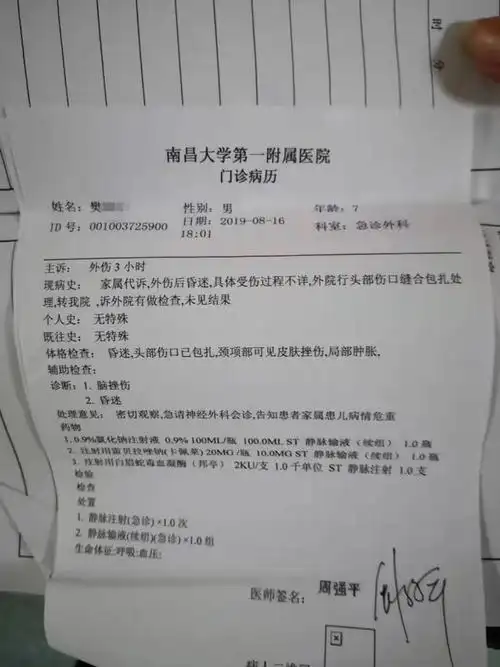 时
分
南昌大学第一附属医院
门诊病历
姓名：樊 性别：男 年龄：7
ID号：001003725900 日期：2019-08-16 18:01 科室：急诊外科
主诉：外伤3小时
现病史：家属代诉,外伤后昏迷,具体受伤过程不详,外院行头部伤口缝合包扎处
理,转我院 ,诉外院有做检查,未见结果
个人史：无特殊
既往史：无特殊
体格检查：昏迷,头部伤口已包扎,颈项部可见皮肤挫伤,局部肿胀,
辅助检查：
诊断：1. 脑挫伤
2. 昏迷
处理意见：密切观察,急请神经外科会诊,告知患者家属患儿病情危重
药物
1.0.9%氯化钠注射液 0.9% 100ML/瓶 100.0ML ST 静脉输液（续组） 1.0 瓶
2. 注射用雷贝拉唑钠(卡佩莱) 20MG /瓶 10.0MG ST 静脉输液（续组） 1.0 瓶
3. 注射用白眉蛇毒血凝酶（邦亭） 2KU/支 1.0 千单位 ST 静脉注射 1.0 支
检验
检查
处置
1. 静脉注射(急诊)×1.0 次
2. 静脉输液(续组)(急诊)×1.0 组
生命体征:呼吸:血压:
医师签名： 周强平
病人二维码